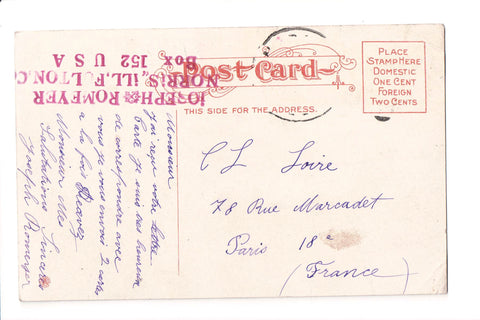 JOSEPH ROMEYER
NORRIS, ILL. FULTON, C
BOX 152 U S A
Post Card
THIS SIDE FOR THE ADDRESS.
PLACE
STAMP HERE
DOMESTIC
ONE CENT
FOREIGN
TWO CENTS
Monsieur
J'ai reçu votre lettre
Carte je suis très heureux
de correspondre avec
vous je vous envoie 2 cartes
a la fois
Monsieur mes
Salutations Sincères
Joseph Romeyer
C L Loire
78 Rue Marcadet
Paris 18e
(France)